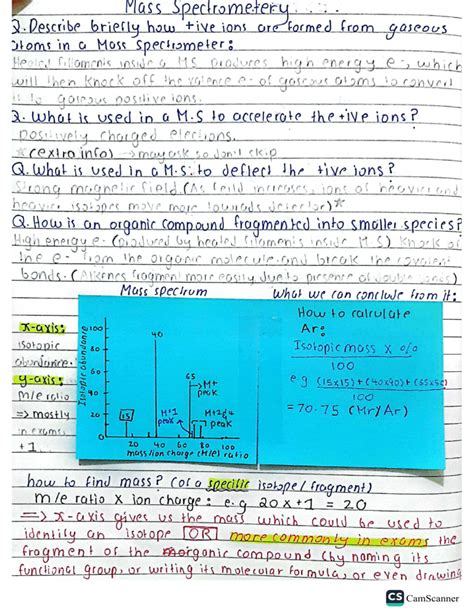 Mass Spectrometery:
Q.Describe briefly how +ive ions are formed from gaseous
atoms in a Mass Spectrometer:
Heated fillaments inside a MS produces high energy e-, which
will then knock off the valence e- of gaseous atoms to convert
it to gaseous positive ions.
Q. What is used in a M.S to accelerate the +ive ions?
positively charged elections.
*(extra info) → may ask so don't skip
Q. What is used in a M.S. to deflect the +ive ions?
Strong magnetic field. (As feild increases, ions of heavier and
heavier isotopes move more towards detector)*
Q. How is an organic compound fragmented into smaller species?
High energy e- (produced by heated filaments inside M.S) knock of
the e- from the organic molecule and break the covalent
bonds. (Alkenes fragment more easily due to presence of double bonds)
Mass spectrum
What we can conclude from it:
x-axis:
isotopic
abundance.
y-axis:
m/e ratio
=> mostly
in exams
+1.
Isotopic abundance
100
80
60
40
20
15
40
65
→M+
peak
M+1
peak
M+2
peak
20 40 60 80 100
mass/ion charge (M/e) ratio
How to calculate
Ar:
Isotopic mass x %
100
e.g (15x15)+(40x90)+(65x50)
100
= 70.75 (Mr/Ar)
how to find mass? (of a specific isotope/fragment)
m/e ratio x ion charge: e.g 20x+1 = 20
=> x-axis gives us the mass which could be used to
identify an isotope OR more commonly in exams the
fragment of the organic compound (by naming its
functional group, or writing its molecular formula, or even drawing
CS CamScanner